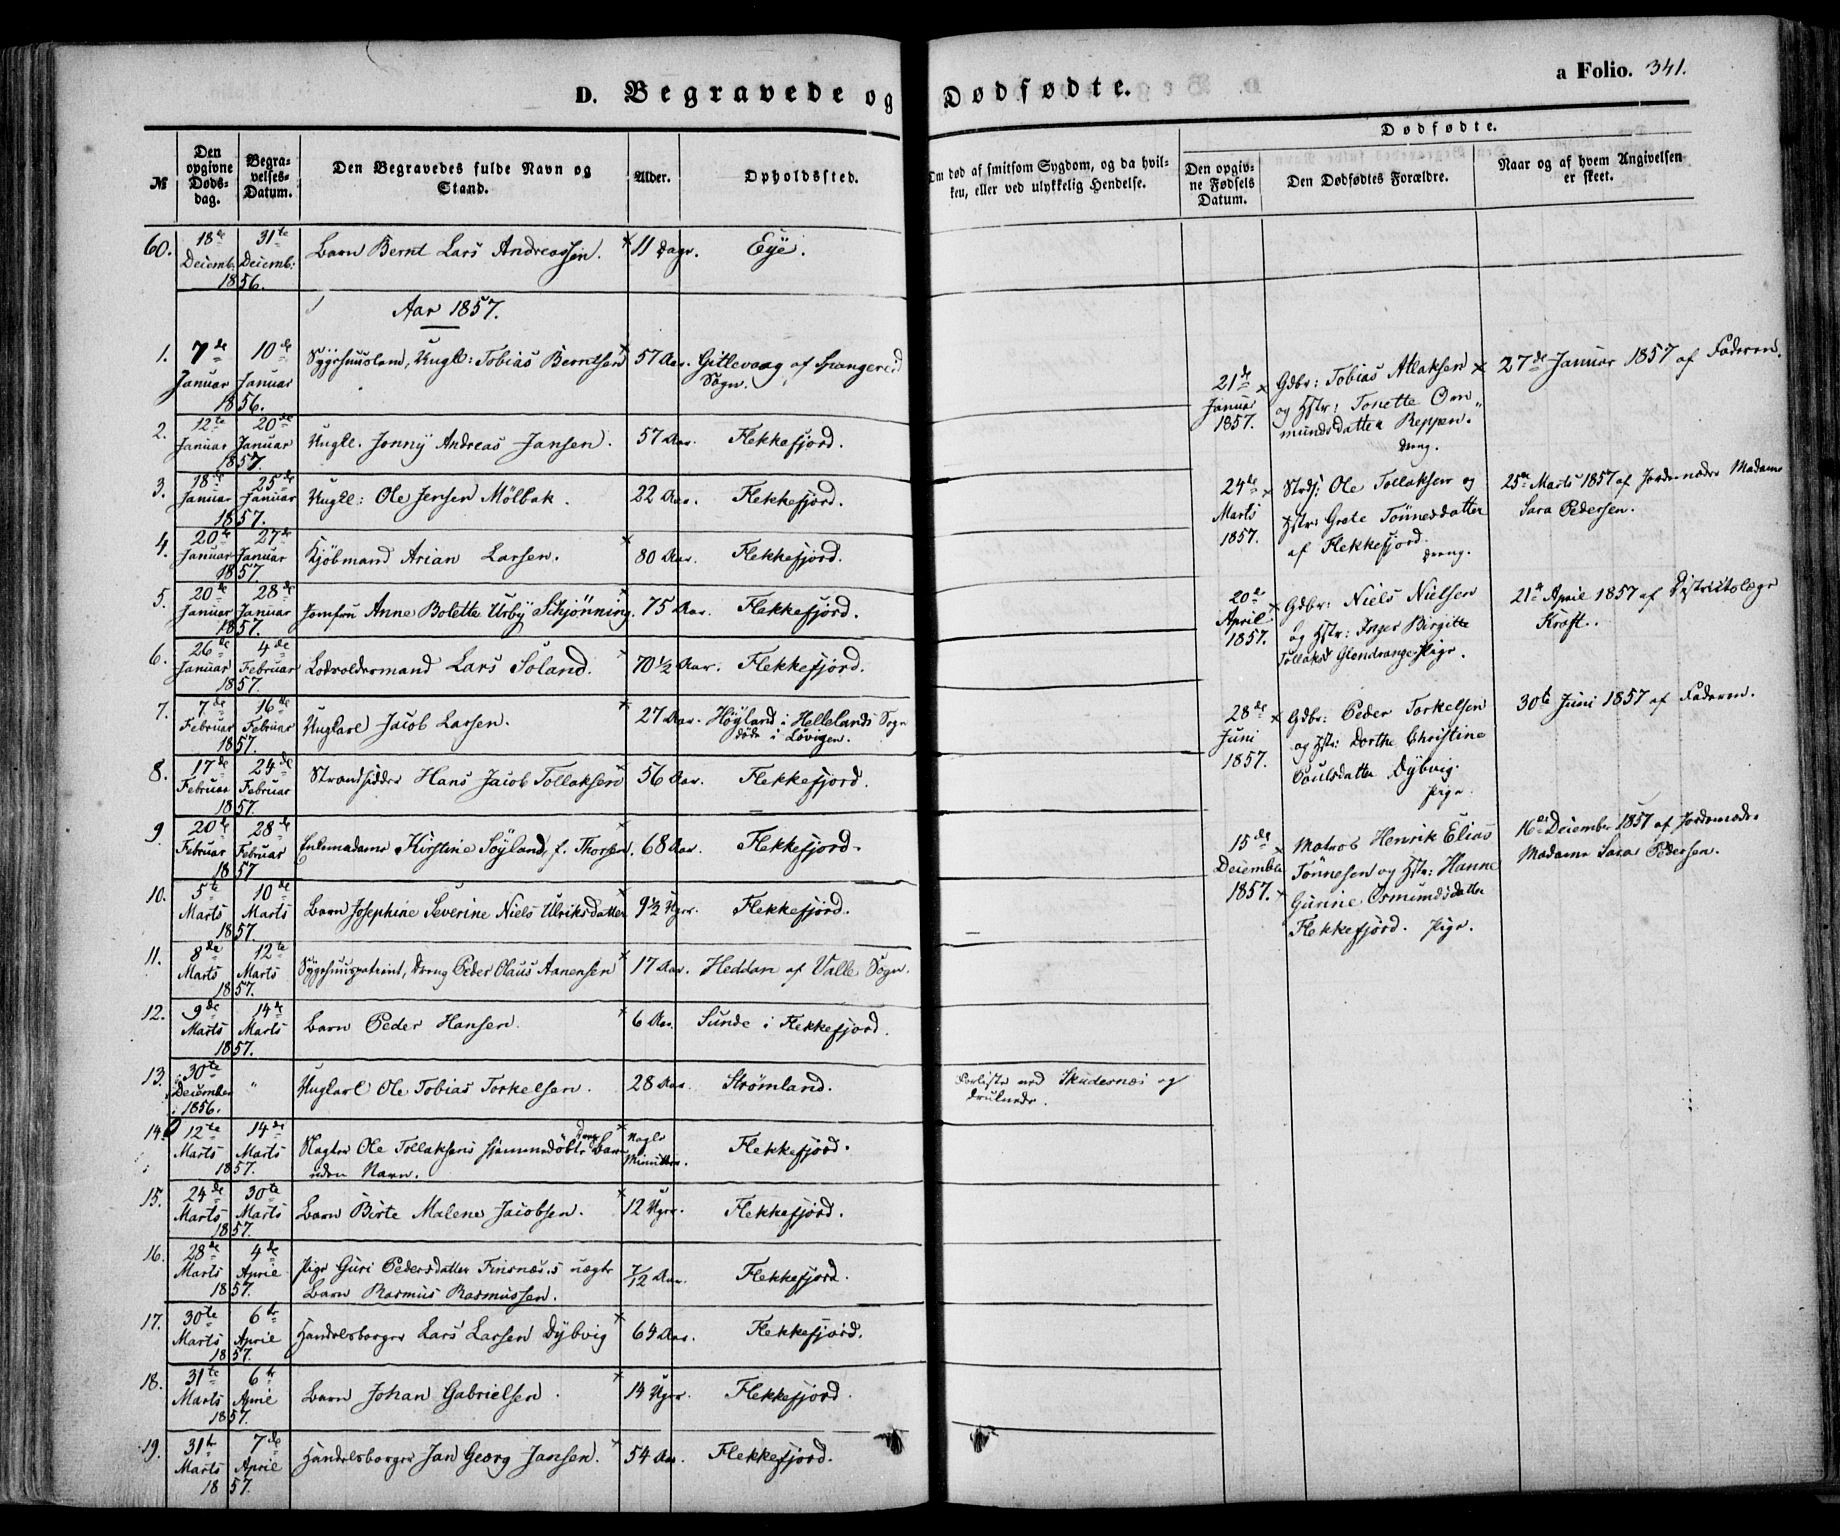 a Folio. 341.
D. Begravede og Dødfødte.
№
Den opgivne Døds-dag.
Begra-velses-Datum.
Den Begravedes fulde Navn og Stand.
Alder.
Opholdssted.
Om død af smitsom Sygdom, og da hvil-ken, eller ved ulykkelig Hendelse.
Dødfødte.
Den opgiv-ne Fødsels Datum.
Den Dødfødtes Forældre.
Naar og af hvem Angivelsen er skeet.
60. 18de Decemb. 31te Decemb: 1856. Barn Bernt Lars Andreassen. 11 Dage. Eye.
Aar 1857.
1. 7de Januar 10de Januar 1856. Tobias Berntsen 57 Aar. Gitlevaag af Spangereid Sogn.
2. 12te Januar 20de Januar 1857. Ungk. Jonny Andreas Jansen. 57 Aar. Flekkefjord.
3. 18de Januar 25de Januar 1857. Ungk: Ole Jensen Mölbak. 22 Aar. Flekkefjord.
4. 20de Januar 27de Januar 1857. Kjöbmand Arian Larsen. 80 Aar. Flekkefjord.
5. 20de Januar 28de Januar 1857. Jomfru Anne Bolette Urby Schjönning. 75 Aar. Flekkefjord.
6. 26de Januar 4de Februar 1857. Lodsoldermand Lars Soland. 70 1/2 Aar. Flekkefjord.
7. 7de Februar 16de Februar 1857. Ungkarl Jacob Larsen. 27 Aar. Höyland i Hellelands Sogn
döde i Lövigen.
8. 17de Februar 24de Februar 1857. Strandsidder Hans Jacob Tollaksen 56 Aar. Flekkefjord.
9. 20de Februar 28de Februar 1857 Enkemadame Kirstine Söyland, f. Thorsen. 68 Aar. Flekkefjord.
10. 5te Marts 10de Marts 1857 Barn Josephine Severine Niels Ulriksdatter 9 1/2 Uger. Flekkefjord.
11. 8de Marts 12te Marts 1857. Sygehuuspatient, Dreng Peder Claus Aanensen 17 Aar. Heddan af Valle Sogn.
12. 9de Marts 14de Marts 1857. Barn Peder Hansen. 6 Aar. Sunde i Flekkefjord.
13. 30te December 1856. " Ungkarl Ole Tobias Torkelsen. 28 Aar. Strömland. Forliste ved Skudesnæs og
druknede.
14. 12te Marts 14de Marts 1857. Slagter Ole Tollaksens hjemmedöbte Dreng Barn
uden Navn. Nogle Minutter. Flekkefjord.
15. 24de Marts 30te Marts 1857. Barn Birte Malene Jacobsen. 12 Uger. Flekkefjord.
16. 28de Marts 4de April 1857. Pige Guri Pedersdatter Finsnæs's uægte
Barn Rasmus Rasmussen. 7/12 Aar. Flekkefjord.
17. 30te Marts 6te April 1857. Handelsborger Lars Larsen Dybvig 64 Aar. Flekkefjord.
18. 31te Marts 6te April 1857. Barn Johan Gabrielsen. 14 Uger. Flekkefjord.
19. 31te Marts 7de April 1857. Handelsborger Jan Georg Jansen. 54 Aar. Flekkefjord.
21de Januar 1857. Gdbr: Tobias Atlaksen
og Hstr: Tonette Om-
mundsdatter Reppen.
Dreng.
27de Januar 1857 af Faderen.
24de Marts 1857. Strds: Ole Tollaksen og
Hstr: Grete Tönnesdatter
af Flekkefjord.
Dreng.
25de Marts 1857 af Jordemoder Madame
Sara Pedersen.
20de April 1857. Gdbr: Niels Nielsen
og Hstr: Inger Birgitte
Tollaksd Glendrange Pige.
21de April 1857 af Districtslæge
Kraft.
28de Juni 1857. Gdbr: Peder Torkelsen
og Hstr: Dorthe Christine
Poulsdatter Dybvig.
Pige.
30te Juni 1857 af Faderen.
15de December 1857. Matros Henrik Elias
Tönnesen og Hstr: Hanne
Gurine Osmundsdatter
Flekkefjord. Pige.
16de December 1857 af Jordemoder
Madame Sara Pedersen.